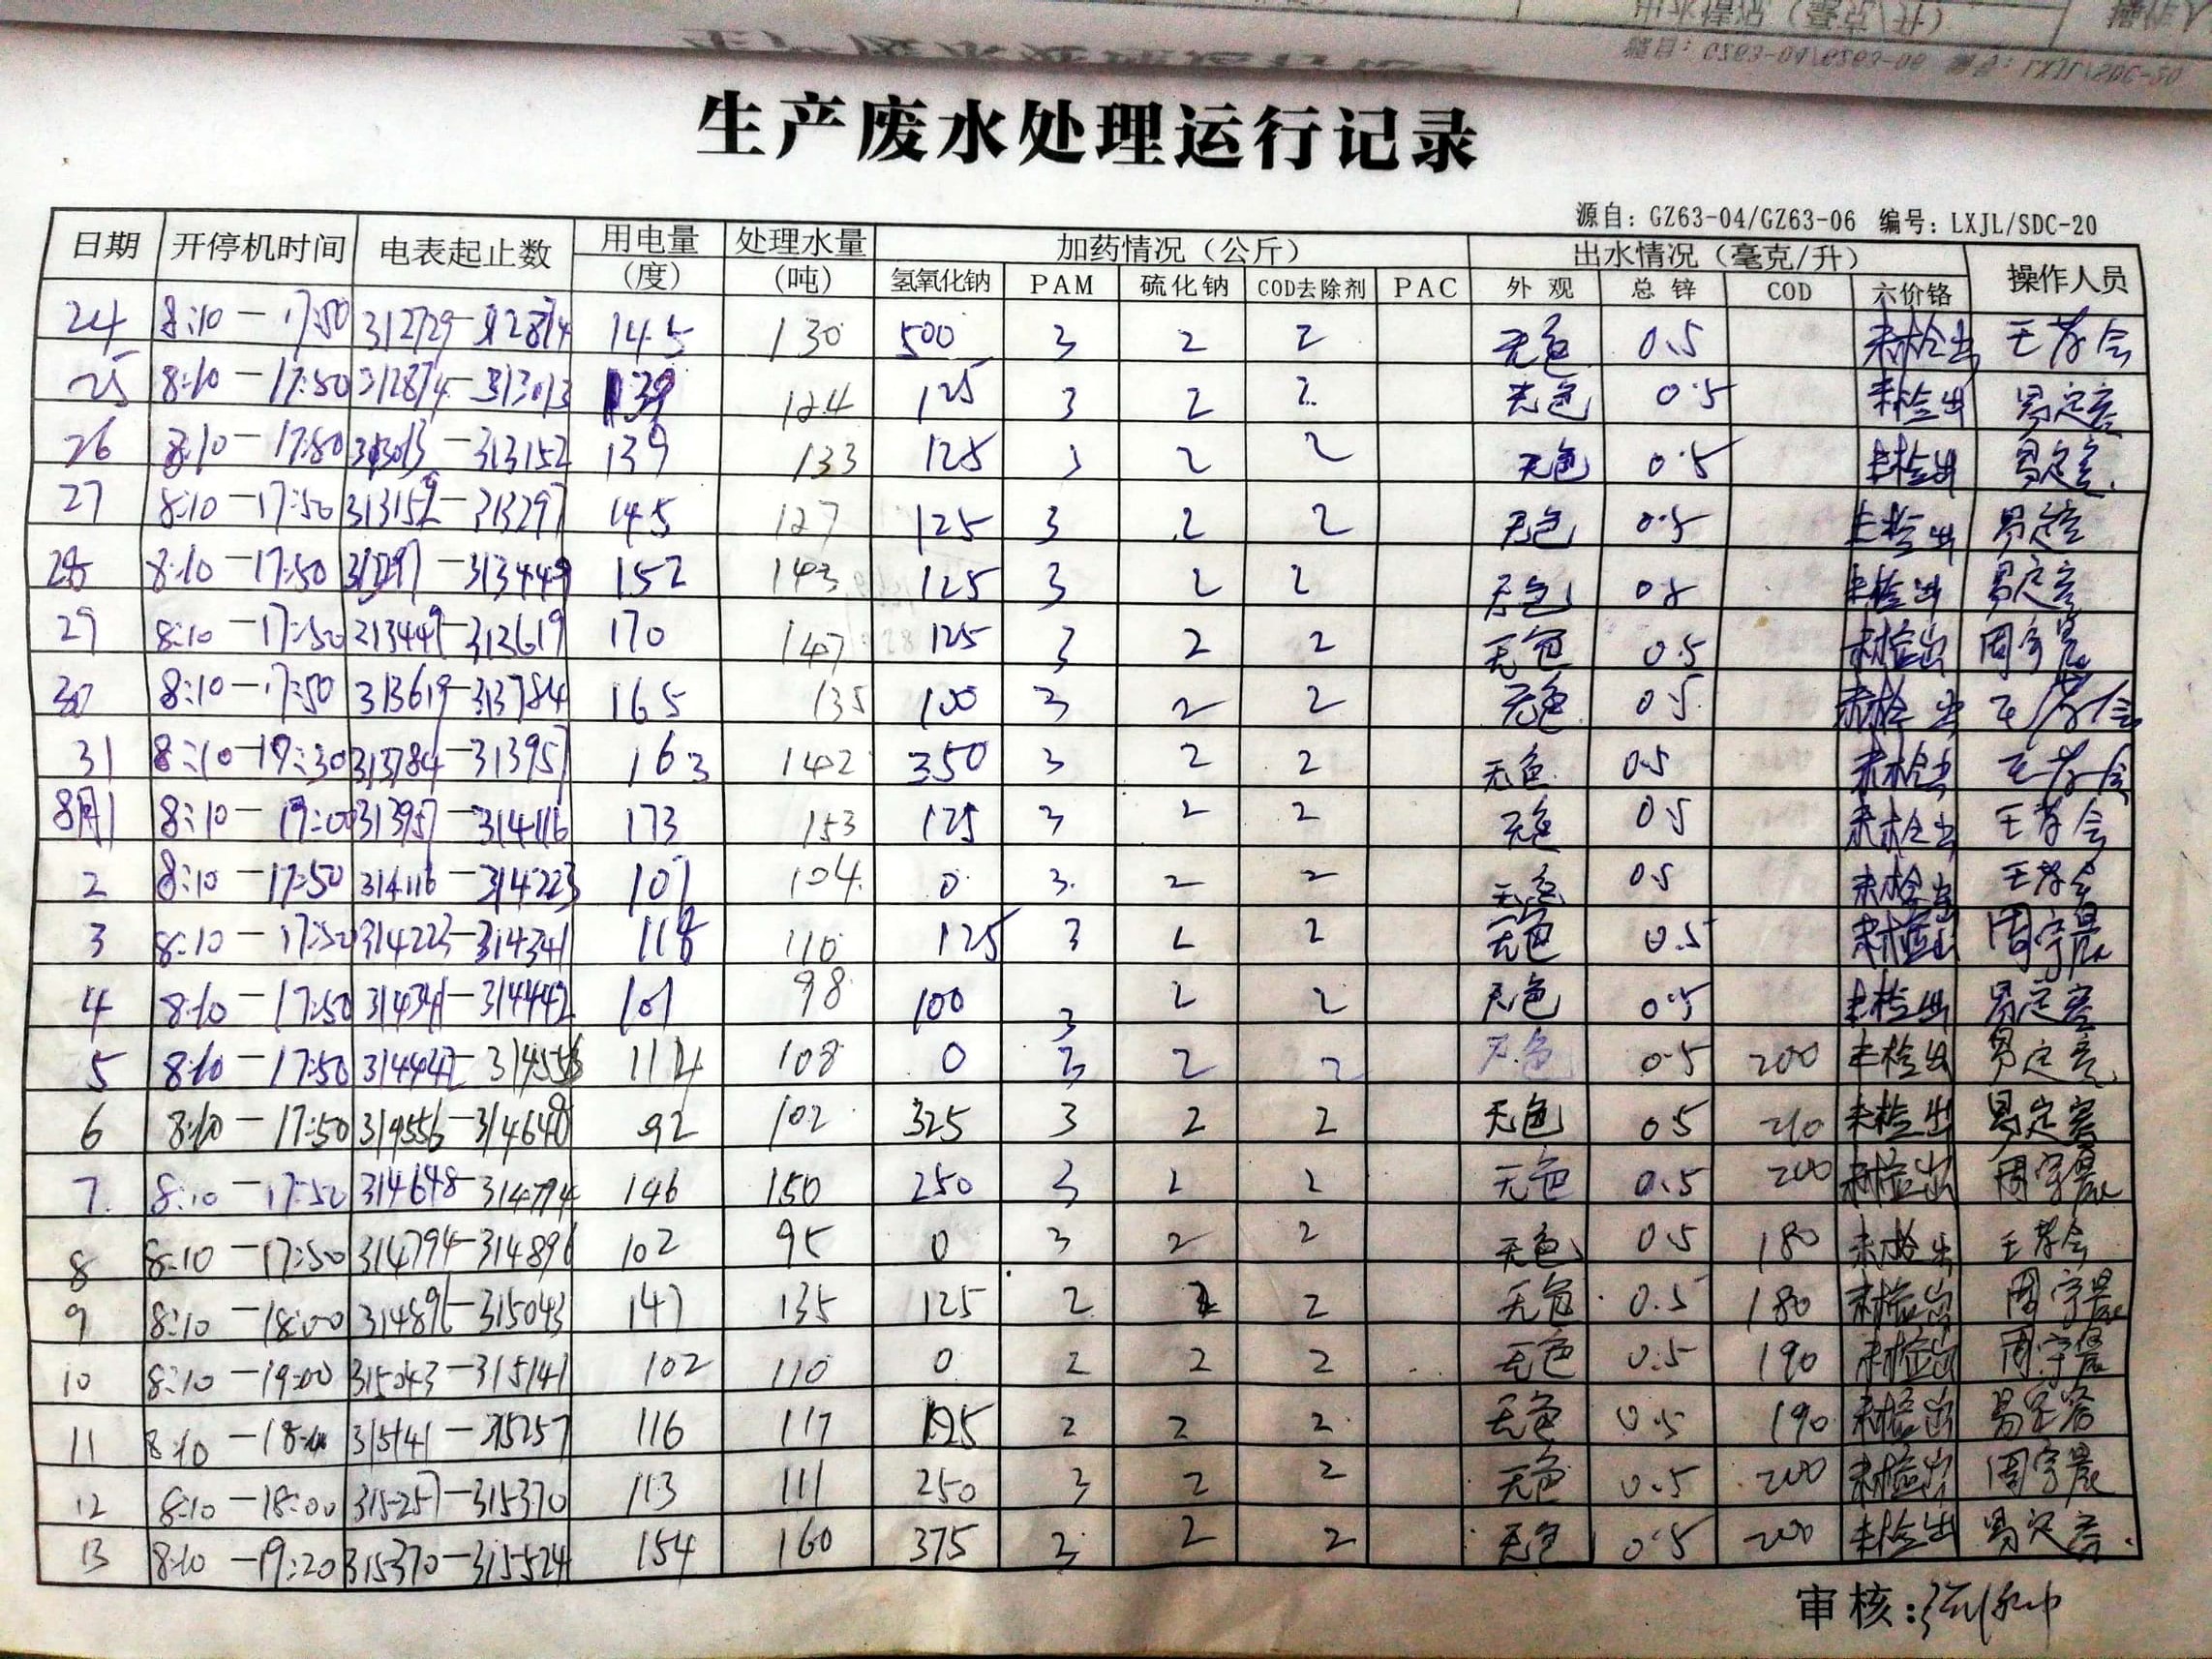 生产废水处理运行记录
源自：GZ63-04/GZ63-06 编号：LXJL/SDC-20
日期 开停机时间 电表起止数 用电量（度） 处理水量（吨） 加药情况（公斤） 出水情况（毫克/升） 操作人员
氢氧化钠 PAM 硫化钠 COD去除剂 PAC 外观 总锌 COD 六价铬
24 8:10－17:50 312729－312874 145 130 500 3 2 2 无色 0.5 未检出
25 8:10－17:50 312874－313013 139 124 125 3 2 2 无色 0.5 未检出
26 8:10－17:50 313013－313152 139 133 125 3 2 2 无色 0.5 未检出
27 8:10－17:50 313152－313297 145 127 125 3 2 2 无色 0.5 未检出
28 8:10－17:50 313297－313449 152 143 125 3 2 2 无色 0.5 未检出
29 8:10－17:50 313449－313619 170 147 125 3 2 2 无色 0.5 未检出 周宇晨
30 8:10－17:50 313619－313784 165 135 100 3 2 2 无色 0.5 未检出
31 8:10－19:30 313784－313957 163 142 350 3 2 2 无色 0.5 未检出
8月1 8:10－19:00 313957－314116 173 153 125 3 2 2 无色 0.5 未检出
2 8:10－17:50 314116－314223 107 104 0 3 2 2 无色 0.5 未检出
3 8:10－17:50 314223－314341 118 110 125 3 2 2 无色 0.5 未检出 周宇晨
4 8:10－17:50 314341－314442 101 98 100 3 2 2 无色 0.5 未检出
5 8:10－17:50 314442－314556 114 108 0 3 2 2 无色 0.5 200 未检出
6 8:10－17:50 314556－314648 92 102 325 3 2 2 无色 0.5 210 未检出
7 8:10－17:50 314648－314794 146 150 250 3 2 2 无色 0.5 200 未检出 周宇晨
8 8:10－17:50 314794－314896 102 95 0 3 2 2 无色 0.5 180 未检出
9 8:10－18:00 314896－315043 147 135 125 2 2 2 无色 0.5 180 未检出 周宇晨
10 8:10－19:00 315043－315141 102 110 0 2 2 2 无色 0.5 190 未检出 周宇晨
11 8:10－18:00 315141－315257 116 117 125 2 2 2 无色 0.5 190 未检出
12 8:10－18:00 315257－315370 113 111 250 3 2 2 无色 0.5 200 未检出 周宇晨
13 8:10－19:20 315370－315524 154 160 375 3 2 2 无色 0.5 200 未检出
审核：